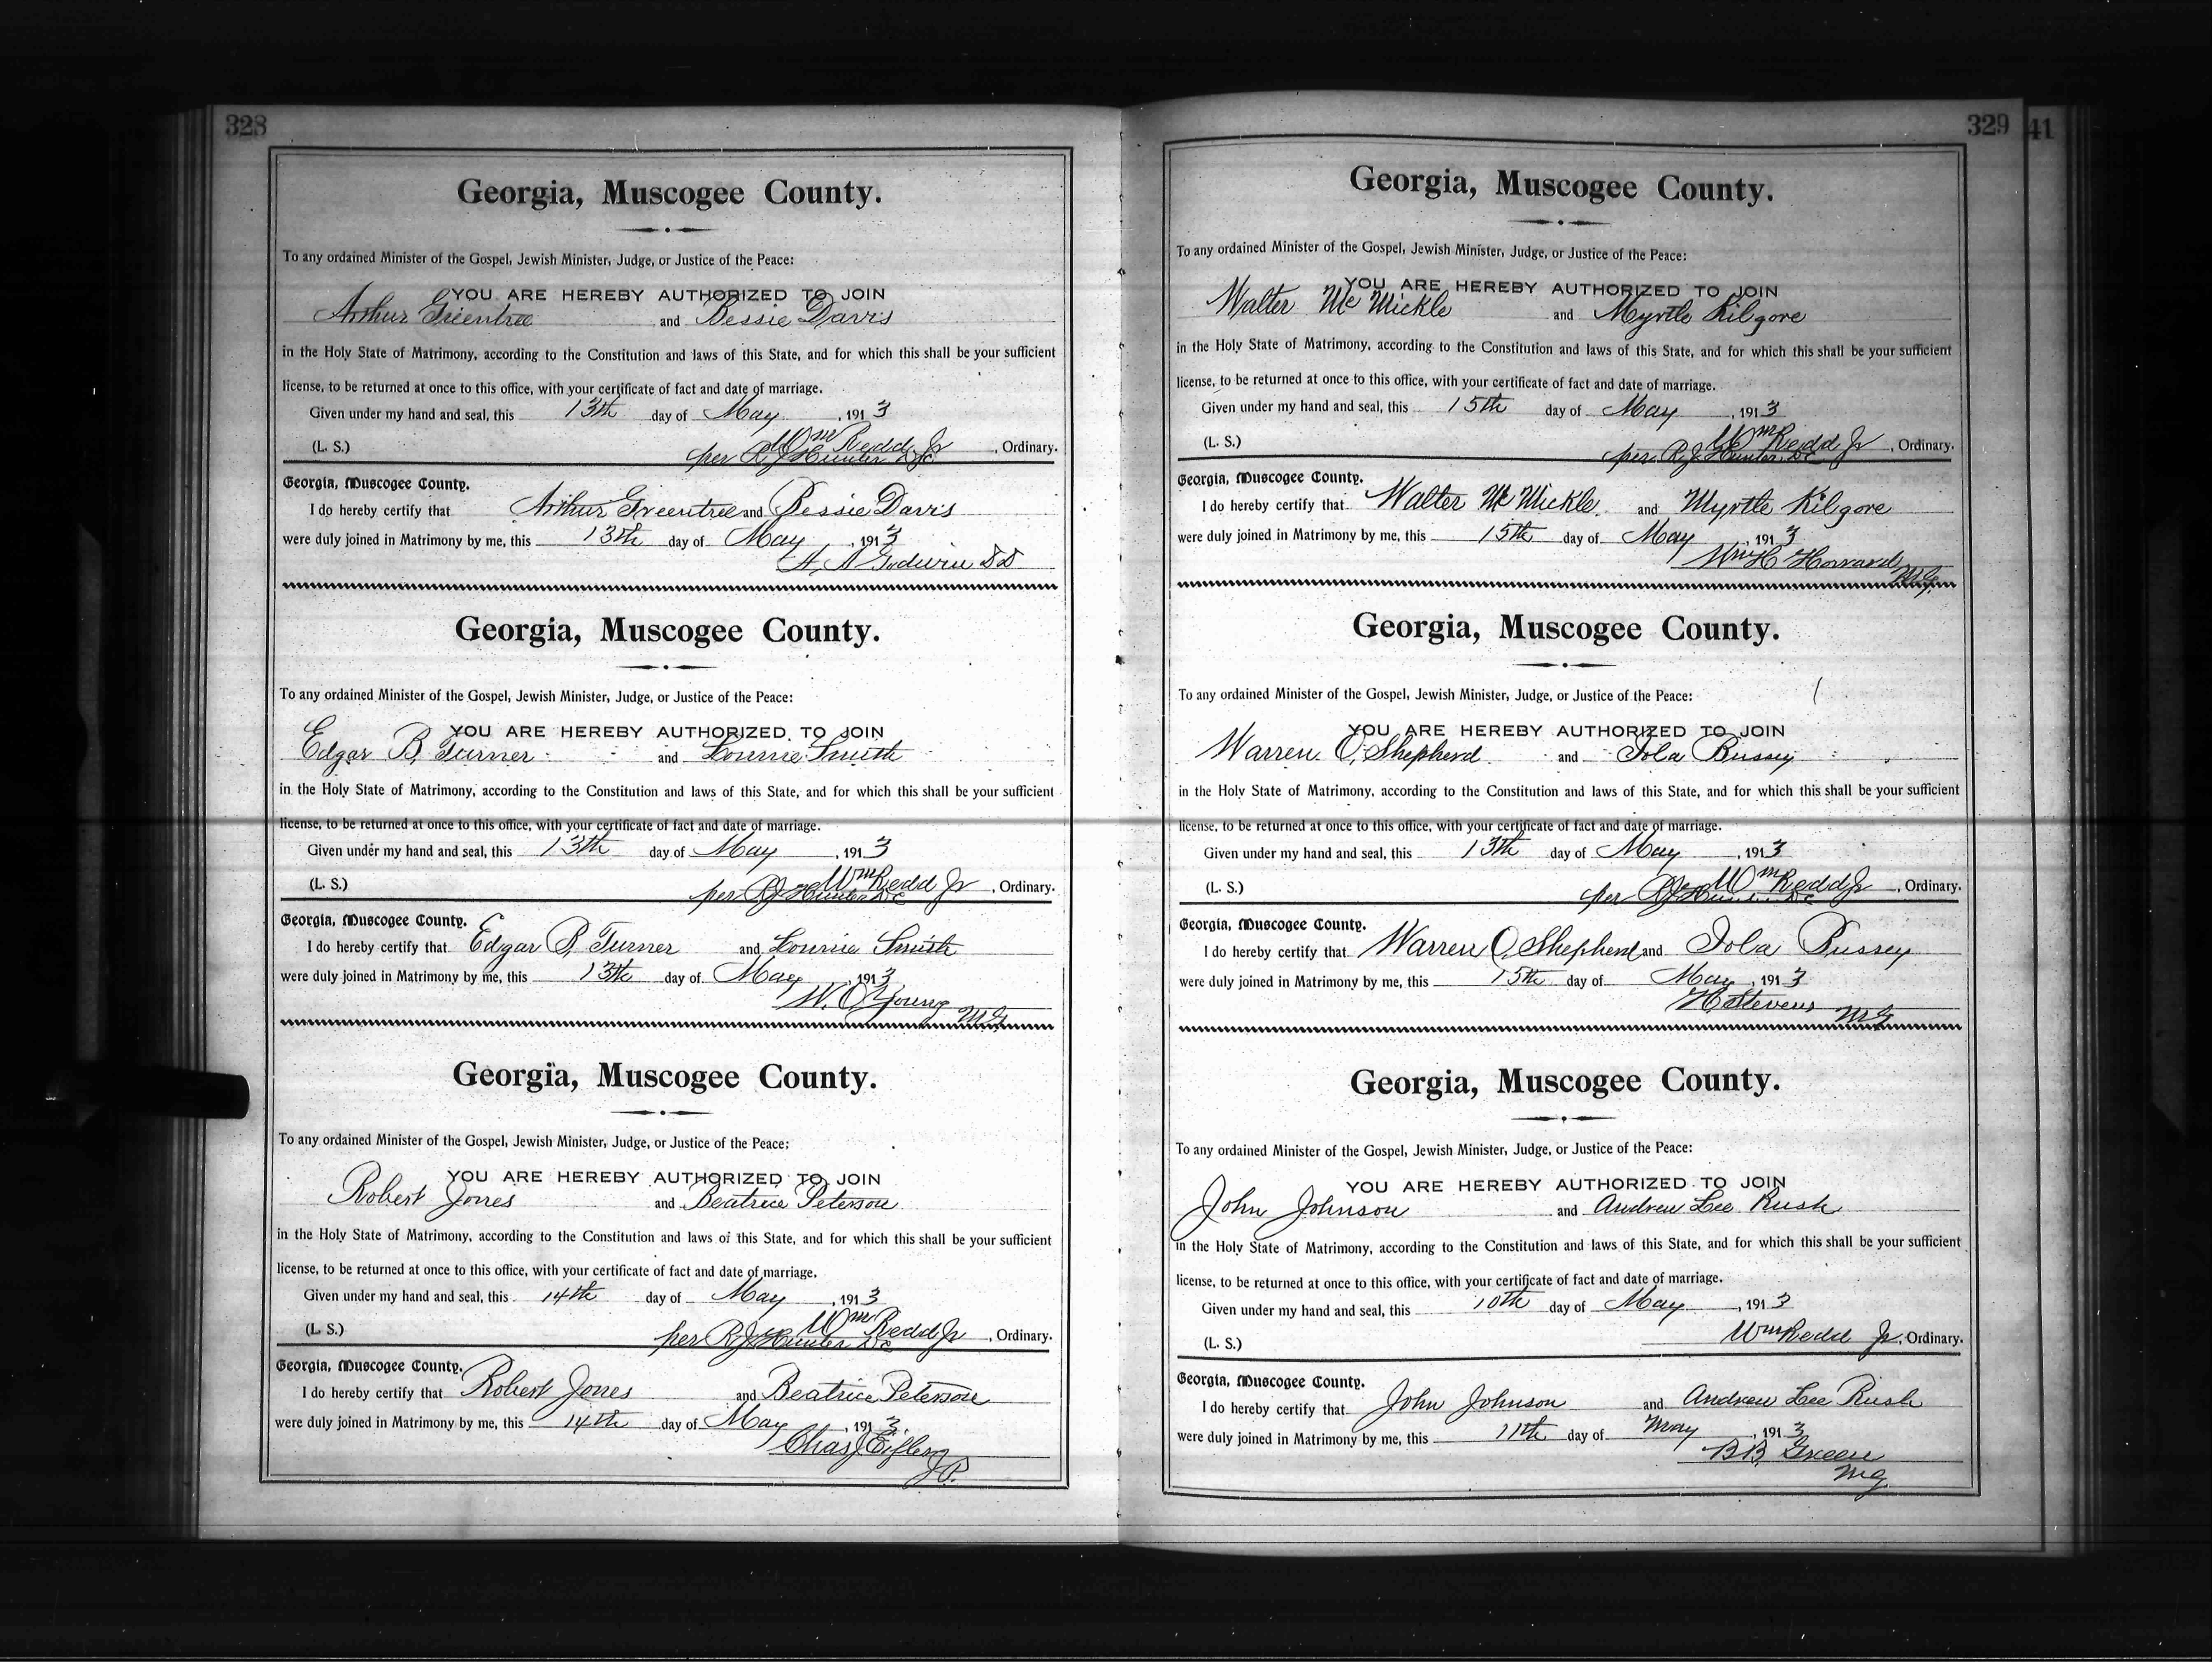 328
Georgia, Muscogee County.
To any ordained Minister of the Gospel, Jewish Minister, Judge, or Justice of the Peace:
YOU ARE HEREBY AUTHORIZED TO JOIN
Arthur Greentree and Bessie Davis
in the Holy State of Matrimony, according to the Constitution and laws of this State, and for which this shall be your sufficient
license, to be returned at once to this office, with your certificate of fact and date of marriage.
Given under my hand and seal, this 13th day of May, 1913
(L. S.) Wm Redd Jr, Ordinary.
per R J Hunter D.C.
Georgia, Muscogee County.
I do hereby certify that Arthur Greentree and Bessie Davis
were duly joined in Matrimony by me, this 13th day of May, 1913
Georgia, Muscogee County.
To any ordained Minister of the Gospel, Jewish Minister, Judge, or Justice of the Peace:
YOU ARE HEREBY AUTHORIZED TO JOIN
Edgar B. Turner and Lonnie Smith
in the Holy State of Matrimony, according to the Constitution and laws of this State, and for which this shall be your sufficient
license, to be returned at once to this office, with your certificate of fact and date of marriage.
Given under my hand and seal, this 13th day of May, 1913
(L. S.) Wm Redd Jr, Ordinary.
per R J Hunter DC
Georgia, Muscogee County.
I do hereby certify that Edgar B. Turner and Lonnie Smith
were duly joined in Matrimony by me, this 13th day of May, 1913
W. O. Young
M.G.
Georgia, Muscogee County.
To any ordained Minister of the Gospel, Jewish Minister, Judge, or Justice of the Peace:
YOU ARE HEREBY AUTHORIZED TO JOIN
Robert Jones and Beatrice Peterson
in the Holy State of Matrimony, according to the Constitution and laws of this State, and for which this shall be your sufficient
license, to be returned at once to this office, with your certificate of fact and date of marriage.
Given under my hand and seal, this 14th day of May, 1913
(L. S.) Wm Redd Jr, Ordinary.
per R J Hunter DC
Georgia, Muscogee County.
I do hereby certify that Robert Jones and Beatrice Peterson
were duly joined in Matrimony by me, this 14th day of May, 1913.
Chas J
J.P.
329 41
Georgia, Muscogee County.
To any ordained Minister of the Gospel, Jewish Minister, Judge, or Justice of the Peace:
YOU ARE HEREBY AUTHORIZED TO JOIN
Walter McMickle and Myrtle Kilgore
in the Holy State of Matrimony, according to the Constitution and laws of this State, and for which this shall be your sufficient
license, to be returned at once to this office, with your certificate of fact and date of marriage.
Given under my hand and seal, this 15th day of May, 1913
(L. S.) Wm Redd Jr, Ordinary.
per R J Hunter DC
Georgia, Muscogee County.
I do hereby certify that Walter McMickle and Myrtle Kilgore
were duly joined in Matrimony by me, this 15th day of May, 1913
Wm H Howard
M.G.
Georgia, Muscogee County.
To any ordained Minister of the Gospel, Jewish Minister, Judge, or Justice of the Peace:
YOU ARE HEREBY AUTHORIZED TO JOIN
Warren O. Shepherd and Iola Bussey
in the Holy State of Matrimony, according to the Constitution and laws of this State, and for which this shall be your sufficient
license, to be returned at once to this office, with your certificate of fact and date of marriage.
Given under my hand and seal, this 13th day of May, 1913
(L. S.) Wm Redd Jr, Ordinary.
per R J Hunter DC
Georgia, Muscogee County.
I do hereby certify that Warren O. Shepherd and Iola Bussey
were duly joined in Matrimony by me, this 15th day of May, 1913
Stevens MG
Georgia, Muscogee County.
To any ordained Minister of the Gospel, Jewish Minister, Judge, or Justice of the Peace:
YOU ARE HEREBY AUTHORIZED TO JOIN
John Johnson and Andrew Lee Rush
in the Holy State of Matrimony, according to the Constitution and laws of this State, and for which this shall be your sufficient
license, to be returned at once to this office, with your certificate of fact and date of marriage.
Given under my hand and seal, this 10th day of May, 1913
(L. S.) Wm Redd Jr, Ordinary.
Georgia, Muscogee County.
I do hereby certify that John Johnson and Andrew Lee Rush
were duly joined in Matrimony by me, this 11th day of May, 1913
BB Green
MG